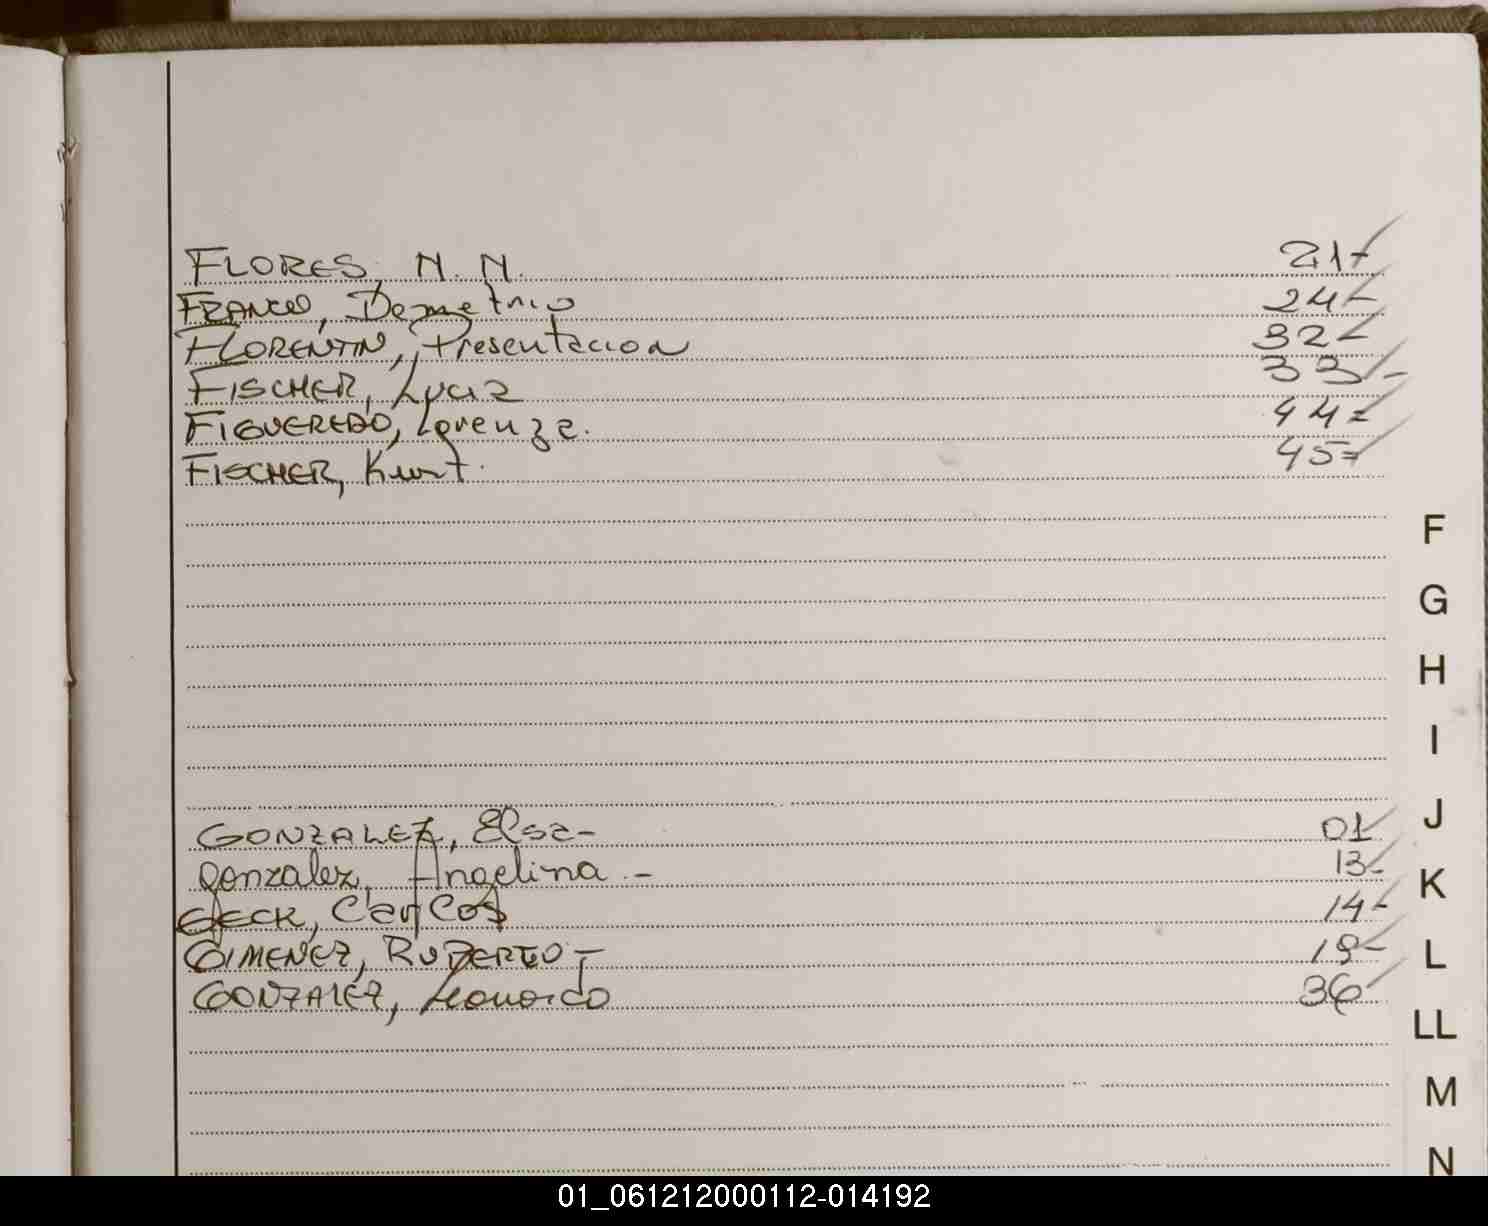 FLORES, N. N. 21-
FRANCO, Demetrio 24-
FLORENTIN, Presentacion 32-
FISCHER, Lucia 33-
FIGUEREDO, Lorenza. 44-
FISCHER, Kurt. 45-
F
G
H
I
J
GONZALEZ, Elsa- 01
Gonzalez, Angelina.- 13-
K
GECK, Carlos 14-
GIMENEZ, RUPERTO- 19-
L
GONZALEZ, 36
LL
M
N
01_061212000112-014192